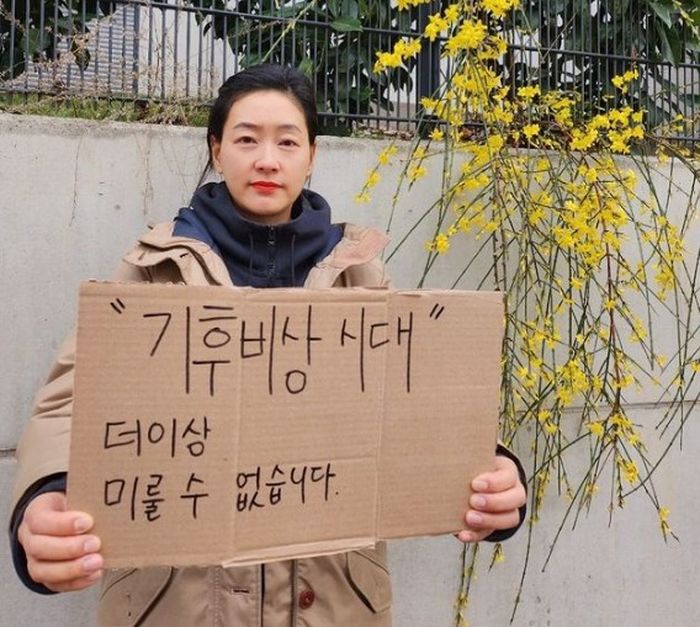 "기후비상 시대"
더이상
미룰 수 없습니다.